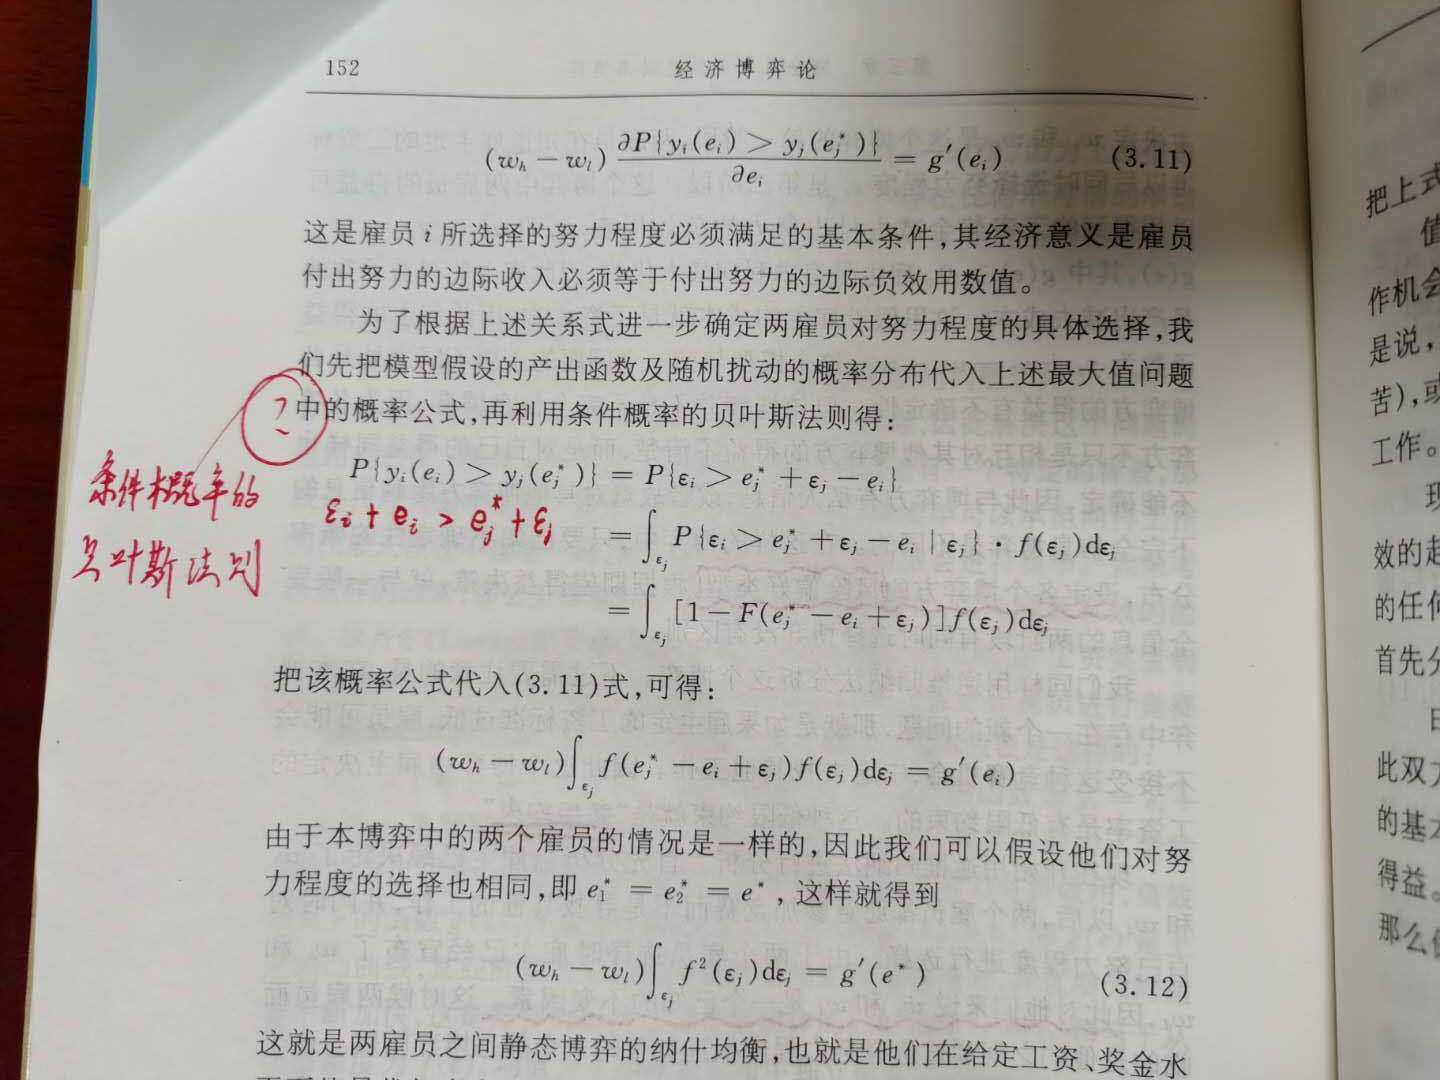 152
经济博弈论
(w_h − w_l) ∂P{y_i(e_i) > y_j(e_j^*)} / ∂e_i = g′(e_i) (3.11)
这是雇员 i 所选择的努力程度必须满足的基本条件,其经济意义是雇员
付出努力的边际收入必须等于付出努力的边际负效用数值。
为了根据上述关系式进一步确定两雇员对努力程度的具体选择,我
们先把模型假设的产出函数及随机扰动的概率分布代入上述最大值问题
中的概率公式,再利用条件概率的贝叶斯法则得:
?
P{y_i(e_i) > y_j(e_j^*)} = P{ε_i > e_j^* + ε_j − e_i}
条件概率的
贝叶斯法则
ε_i + e_i > e_j^* + ε_j
= ∫_{ε_j} P{ε_i > e_j^* + ε_j − e_i | ε_j} · f(ε_j)dε_j
= ∫_{ε_j} [1 − F(e_j^* − e_i + ε_j)]f(ε_j)dε_j
把该概率公式代入(3.11)式,可得:
(w_h − w_l)∫_{ε_j} f(e_j^* − e_i + ε_j)f(ε_j)dε_j = g′(e_i)
由于本博弈中的两个雇员的情况是一样的,因此我们可以假设他们对努
力程度的选择也相同,即 e_1^* = e_2^* = e^* , 这样就得到
(w_h − w_l)∫_{ε_j} f²(ε_j)dε_j = g′(e^*) (3.12)
这就是两雇员之间静态博弈的纳什均衡,也就是他们在给定工资、奖金水
把上式
值
作机会
是说,
苦),或
工作。
现
效的起
的任何
首先分
此双方
的基本
得益。
那么